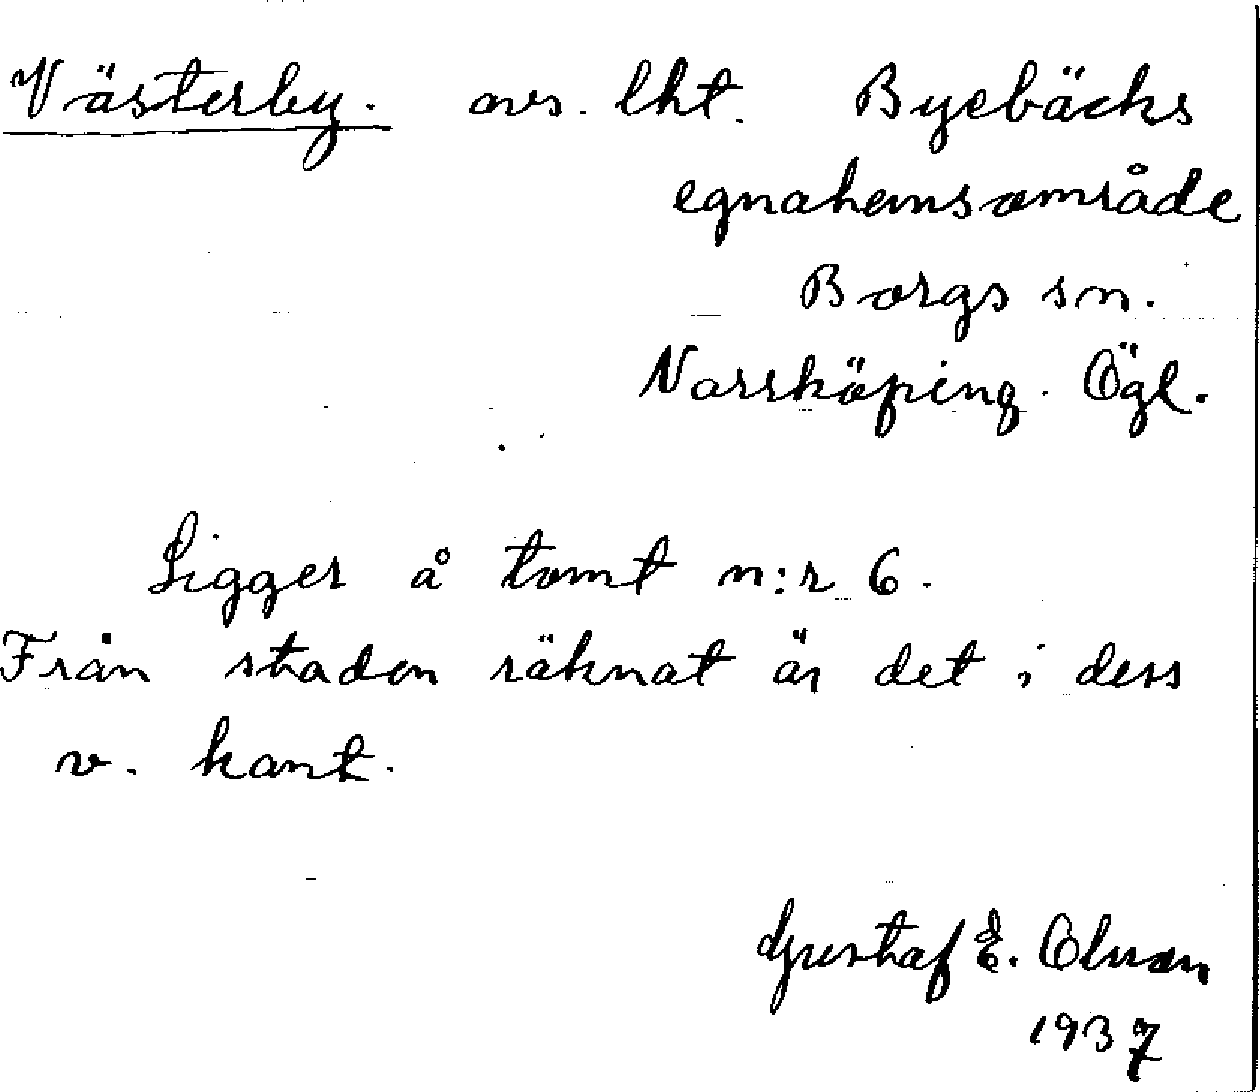 Västerby. avs. lht. Byebäcks
egnahemsområde
Borgs sn.
Norrköping. Ögl.
Ligger å tomt n:r 6.
Från staden räknat är det i dess
v. kant.
Gustaf E. Olsson
1937